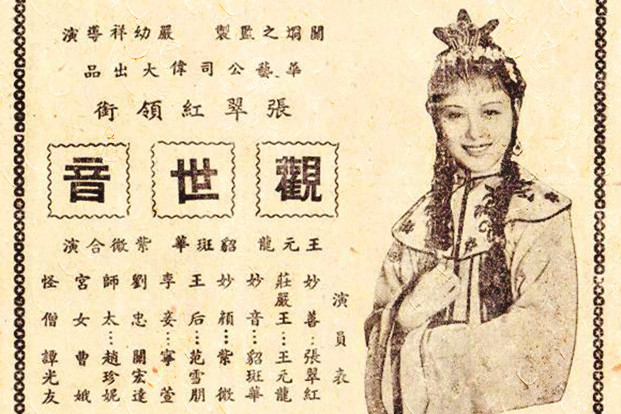 關炯之監製 嚴幼祥導演
華藝公司偉大出品
張翠紅領銜
觀世音
王元龍 貂斑華 紫微合演
演員表
妙善…張翠紅
莊嚴王…王元龍
妙音…貂斑華
妙顏…紫微
王后…范雪朋
李妾…寧萱
劉忠…關宏達
師太…趙珍妮
宮女 曹娥
怪僧 譚光友